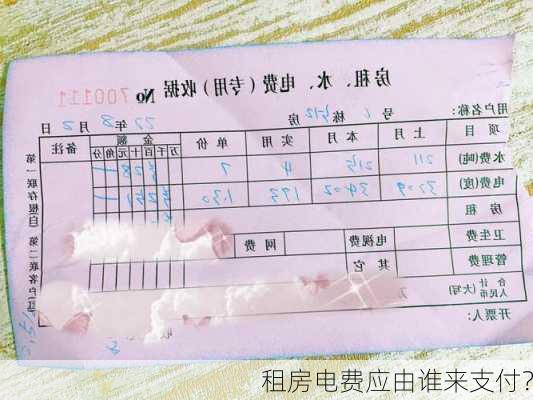 房租、水、电费(专用)收据 No 700111
用户名称: 号 栋 房 22年 8月 2日
项目 上月 本月 实用 单价 金额 备注
万 千 百 十 元 角 分
水费(吨) 211 215 4 7
电费(度) 3209 3402 193 1.30
房租
卫生费 电视费 网费
管理费 其它
合计人民币(大写) 万
开票人:
第一联存根(白) 第二联客户(红)
租房电费应由谁来支付?